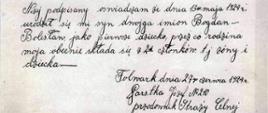 Niżej podpisany oświadczam że dnia maja 1929 r.
urodził się mi syn dwojga imion Bogdan-
Bolesław, jako pierwsze dziecko, przez co rodzina
moja obecnie składa się z 2ch członków tj żony i
dziecka —
Folwark dnia 27 czerwca 1929 r.
Straży Celnej